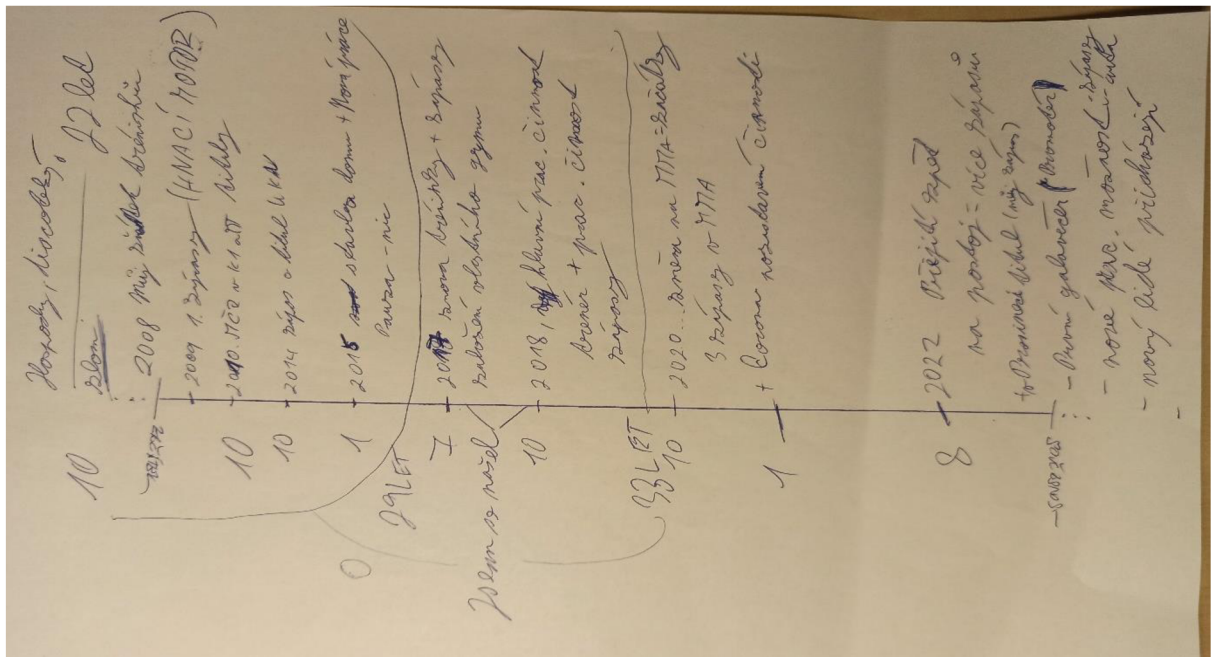 Hospody, diskotéky,
zlom 22 let
10
2008 můj začátek tréninku
2009 1. zápasy (HNACÍ MOTOR)
10 2010. MČR v K1 a MT tituly
10 2014 zápas o titul W KN
1 2015 stavba domu + Nová práce
Pauza - nic
29 LET
7 2017 znovu tréninky + zápasy
založení vlastního gymu
Jsem se našel
10 2018, hlavní prac. činnost
trenér + prac. činnost
zápasy
0
33 LET
10 2020... změna na MMA = začátky
3 zápasy v MMA
1 + Corona pozastavení činnosti
8 2022 Přežití zpět
na postoj = více zápasů
+ Prominent titul (můj zápas)
- První galavečer (Promotér)
- nové prac. možnosti - zápasy
- nový lidé přicházejí
-